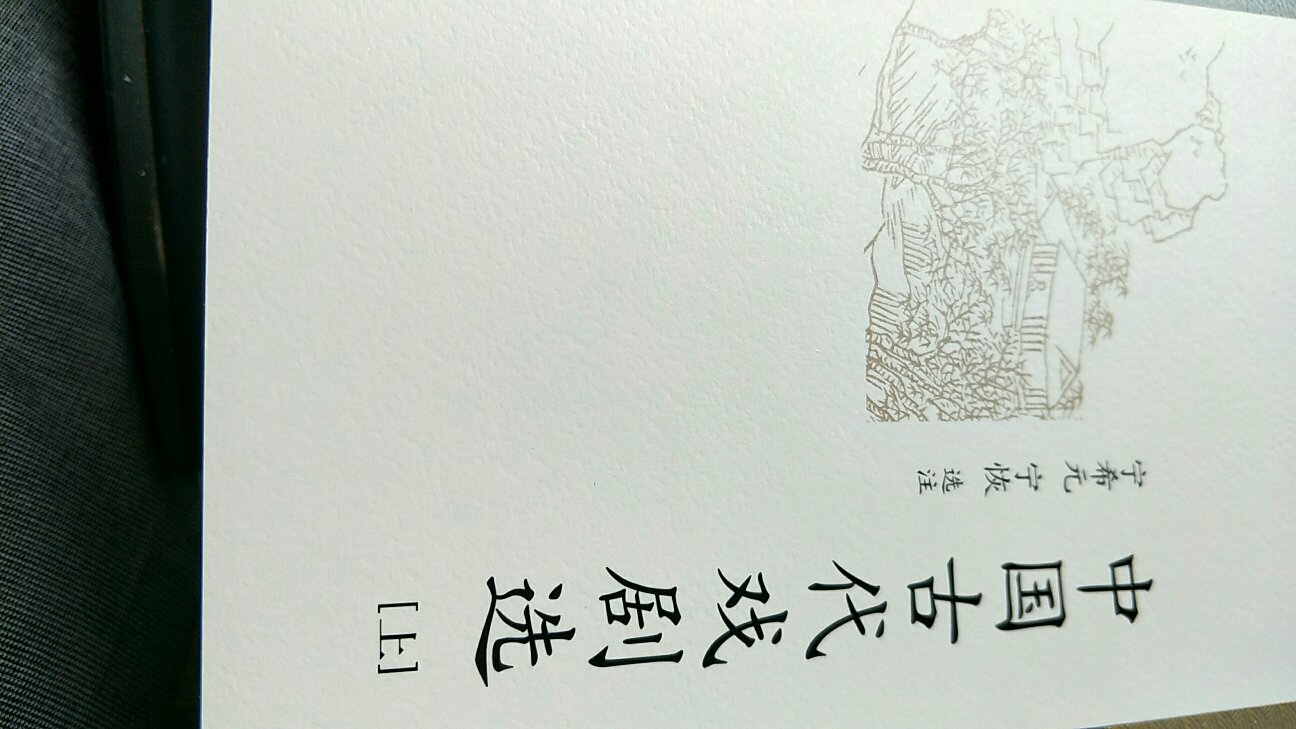 中国古代戏剧选
[上]
宁希元 宁恢 选注